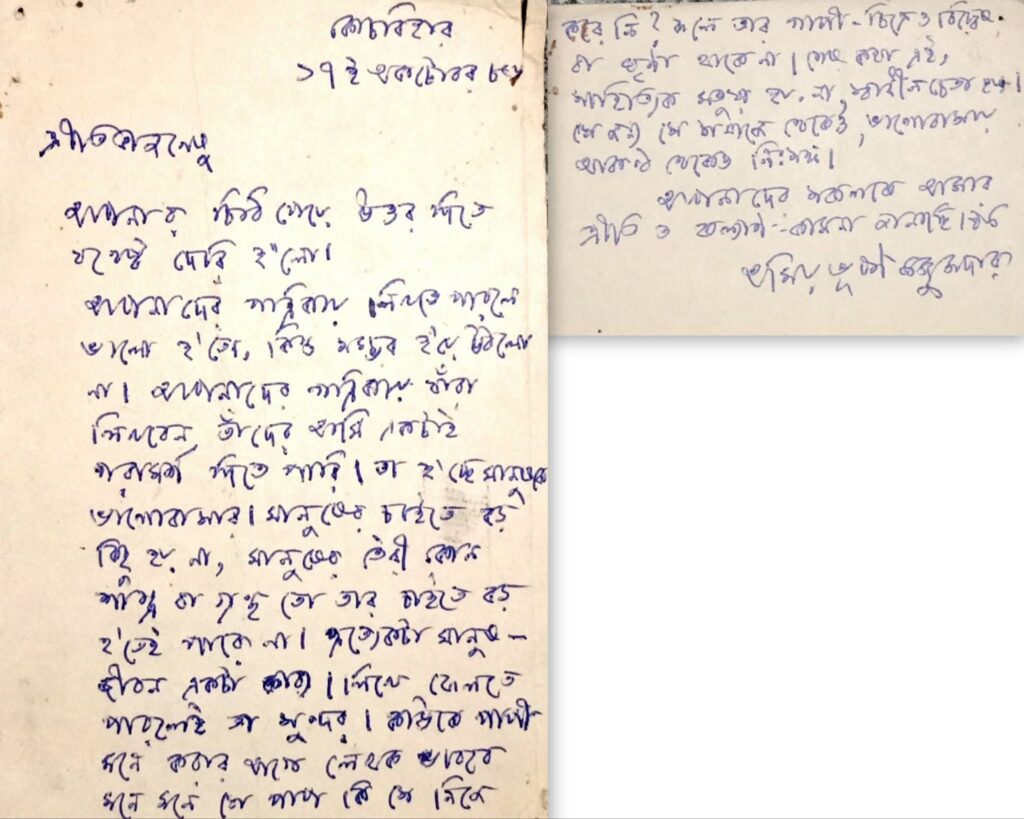 কোচবিহার
১৭ই অক্টোবর ৮৮
প্রীতিভাজনেষু
আপনার চিঠি পেয়ে উত্তর দিতে
যথেষ্ট দেরি হ'লো।
আপনাদের পত্রিকায় লিখতে পারলে
ভালো হ'তো, কিন্তু সম্ভব হ'য়ে উঠলো
না। আপনাদের পত্রিকায় যাঁরা
লিখবেন, তাঁদের আমি একটাই
পরামর্শ দিতে পারি। তা হ'চ্ছে মানুষকে
ভালোবাসার। মানুষের চাইতে বড়
কিছু হয় না, মানুষের তৈরী কোন
শাস্ত্র বা গ্রন্থ তো তার চাইতে বড়
হ'তেই পারে না। প্রত্যেকটা মানুষ-
জীবন একটা কাব্য। লিখে ফেলতে
পারলেই তা সুন্দর। কাউকে পাপী
মনে করার আগে লেখক ভাববে
মনে মনে সে পাপ কি সে নিজে
করে নি? ফলে তার পাপী-চিত্রেও বিদ্বেষ
বা ঘৃণা থাকে না। শেষ কথা এই,
সাহিত্যিক মতুয়া হয় না, স্বাধীনচেতা হয়।
সে জন্য সে সমাজে থেকেও, ভালোবাসায়
আকণ্ঠ থেকেও নিঃসঙ্গ।
আপনাদের সকলকে আমার
প্রীতি ও কল্যাণ-কামনা জানাচ্ছি। ইতি
অমিয়ভূষণ মজুমদার।